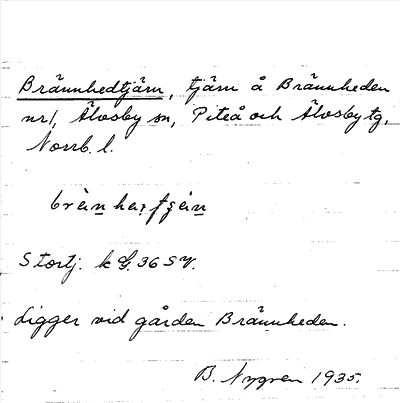 Brännhedtjärn, tjärn å Brännheden
nr 1, Älvsby sn, Piteå och Älvsby tg,
Norrb. l.
Stortj. k G. 36 SV.
Ligger vid gården Brännheden.
B. Nygren 1935.